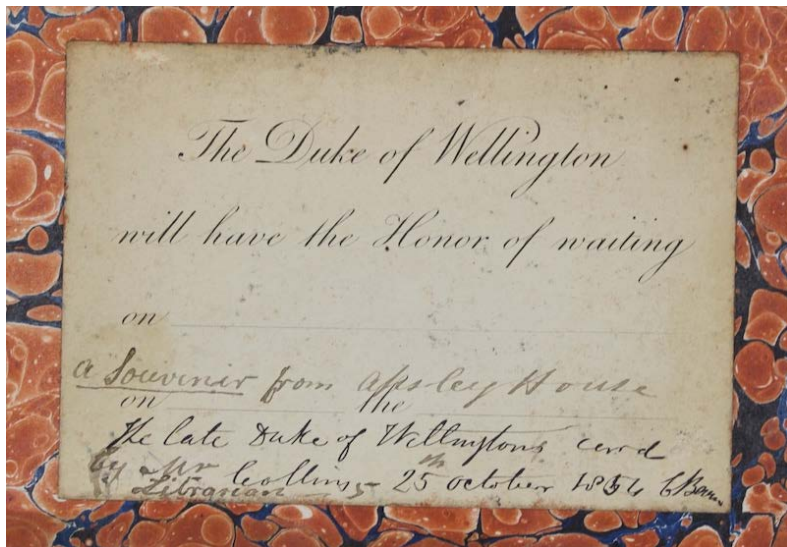 The Duke of Wellington
will have the Honor of waiting
on
a Souvenir from Apsley House
on the
The late Duke of Wellingtons card
by Mr Collins 25th October 1854
Librarian